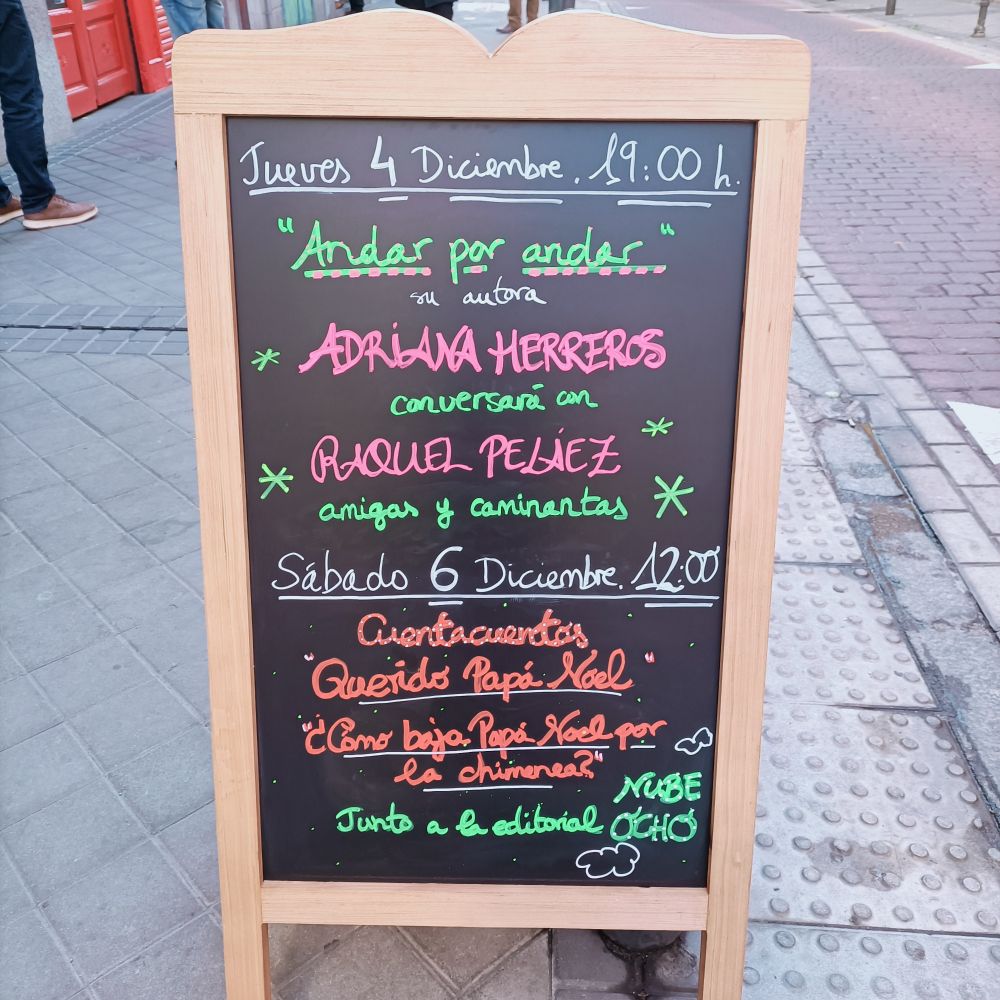 Jueves 4 Diciembre. 19:00 h.
"Andar por andar"
su autora
ADRIANA HERREROS
conversará con
RAQUEL PELÁEZ
amigas y caminantas
Sábado 6 Diciembre. 12:00
Cuentacuentos
"Querido Papá Noel"
"¿Cómo baja Papá Noel por
la chimenea?"
Junto a la editorial NUBE
OCHO